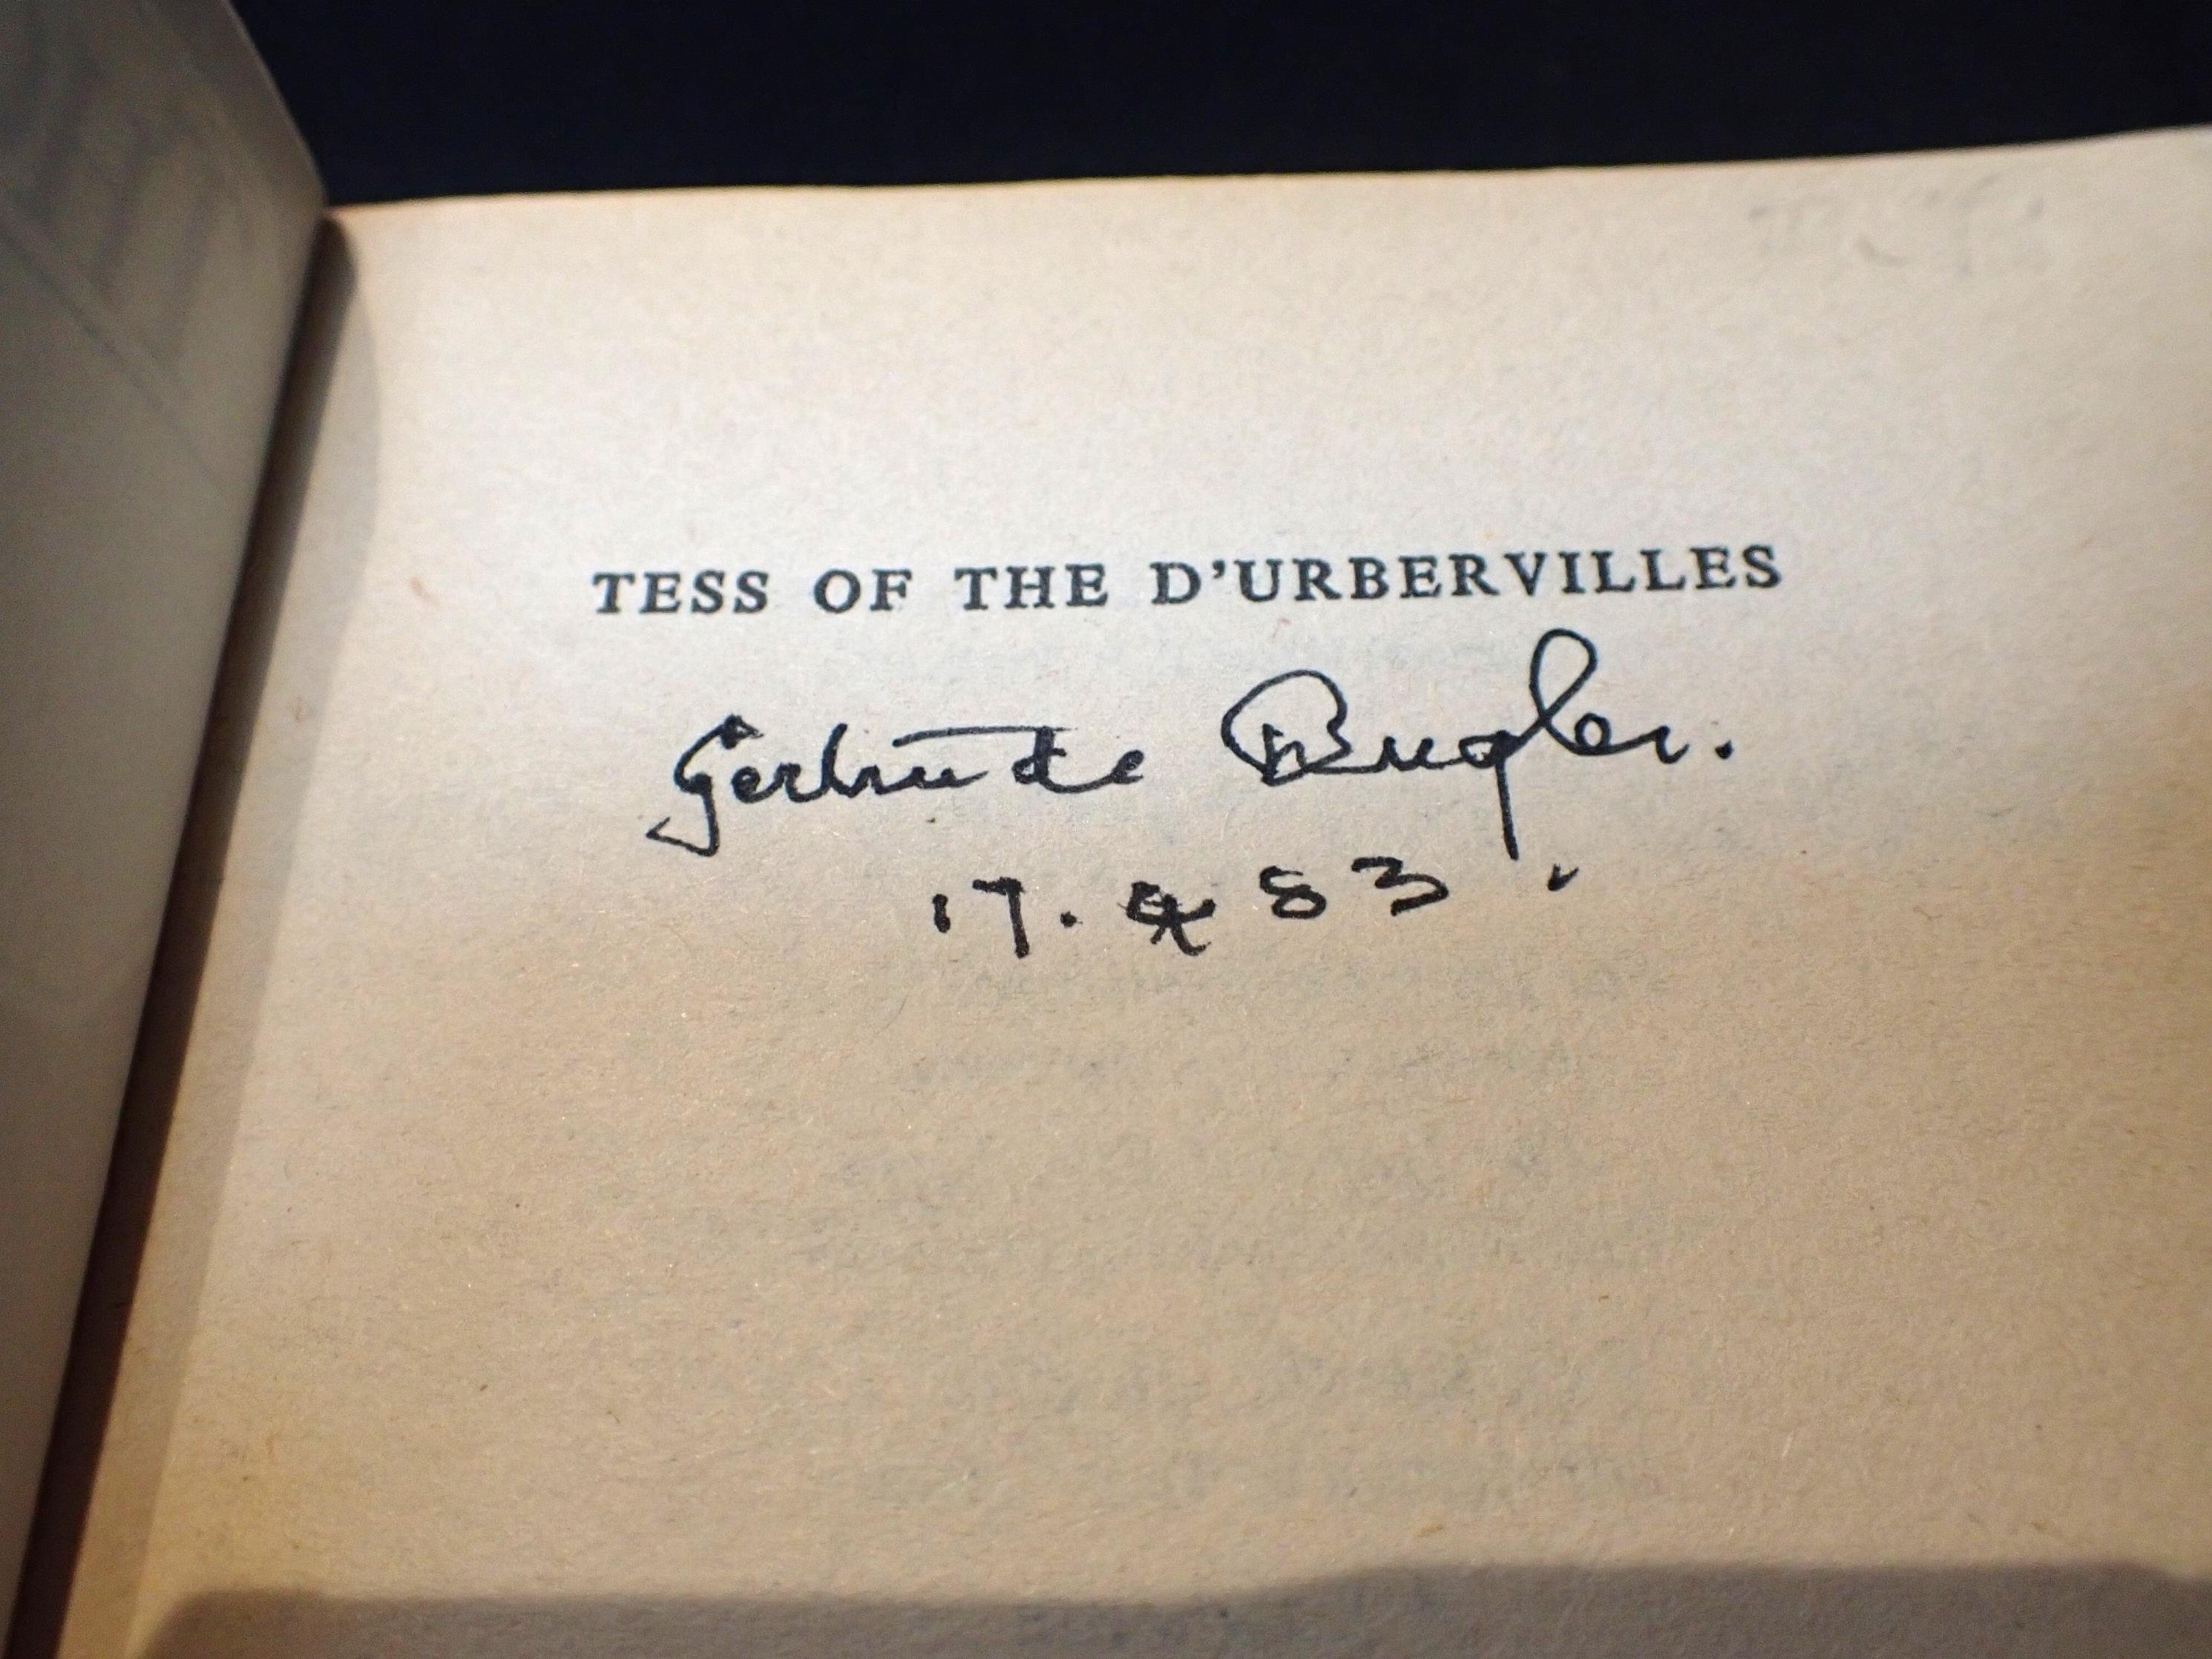 TESS OF THE D'URBERVILLES
Gertrude Bugler.
17. 83.